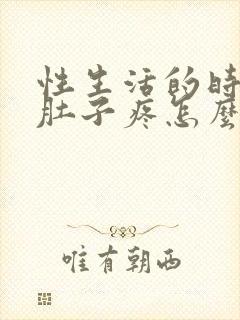 性生活的時
肚子疼怎麼
唯有朝西